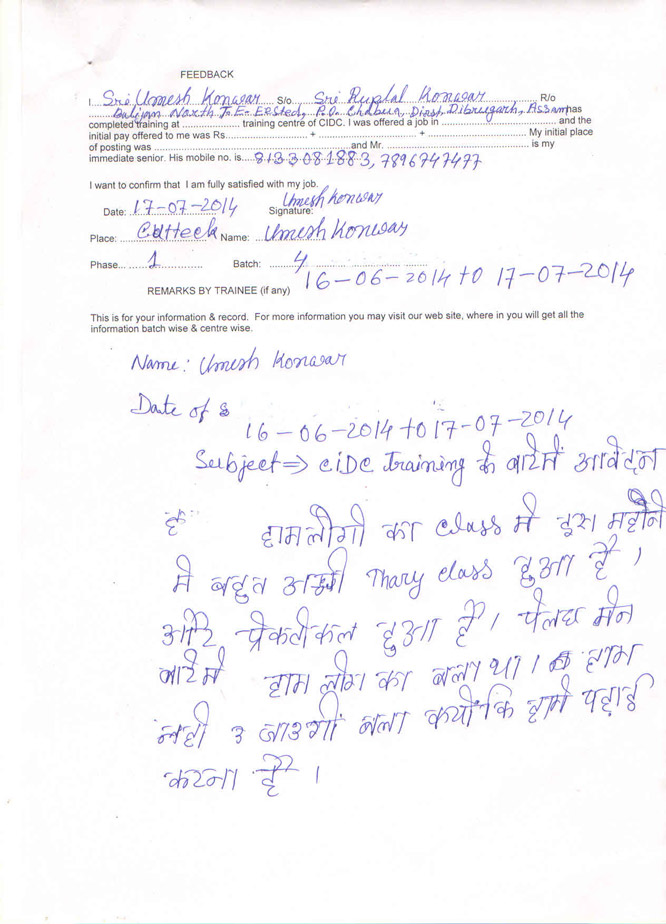 FEEDBACK
I.... Sri Umesh Konwar ..... S/o.... Sri Ruplal Konwar .................. R/o
........ Balijan North T.E. P.O. Chabua, Dist. Dibrugarh, Assam has
completed training at ........................ training centre of CIDC. I was offered a job in ................................ and the
initial pay offered to me was Rs........................ + ............................ + ............................ My initial place
of posting was ........................................................ and Mr. .......................................... is my
immediate senior. His mobile no. is.... 8133081883, 7896747477
I want to confirm that I am fully satisfied with my job.
Date: 17-07-2014 Signature: Umesh Konwar
Place: ....Cutteck Name: ...Umesh Konwar
Phase... 1 .............. Batch: ....... 4 ............
REMARKS BY TRAINEE (if any) 16-06-2014 to 17-07-2014
This is for your information & record. For more information you may visit our web site, where in you will get all the
information batch wise & centre wise.
Name: Umesh Konwar
Date of
16-06-2014 to 17-07-2014
Subject⇒ CIDC Training के बारेमें आवेदन
हामलोगो का class मे इस महीने
मे बहुत अच्छी Thary class हुआ है ।
और प्रेकटीकल हुआ हैं । मेन
बारेमे हाम लोग का बला था । हाम
नही बला क्योंकि हामे पढ़ाई
करना है ।